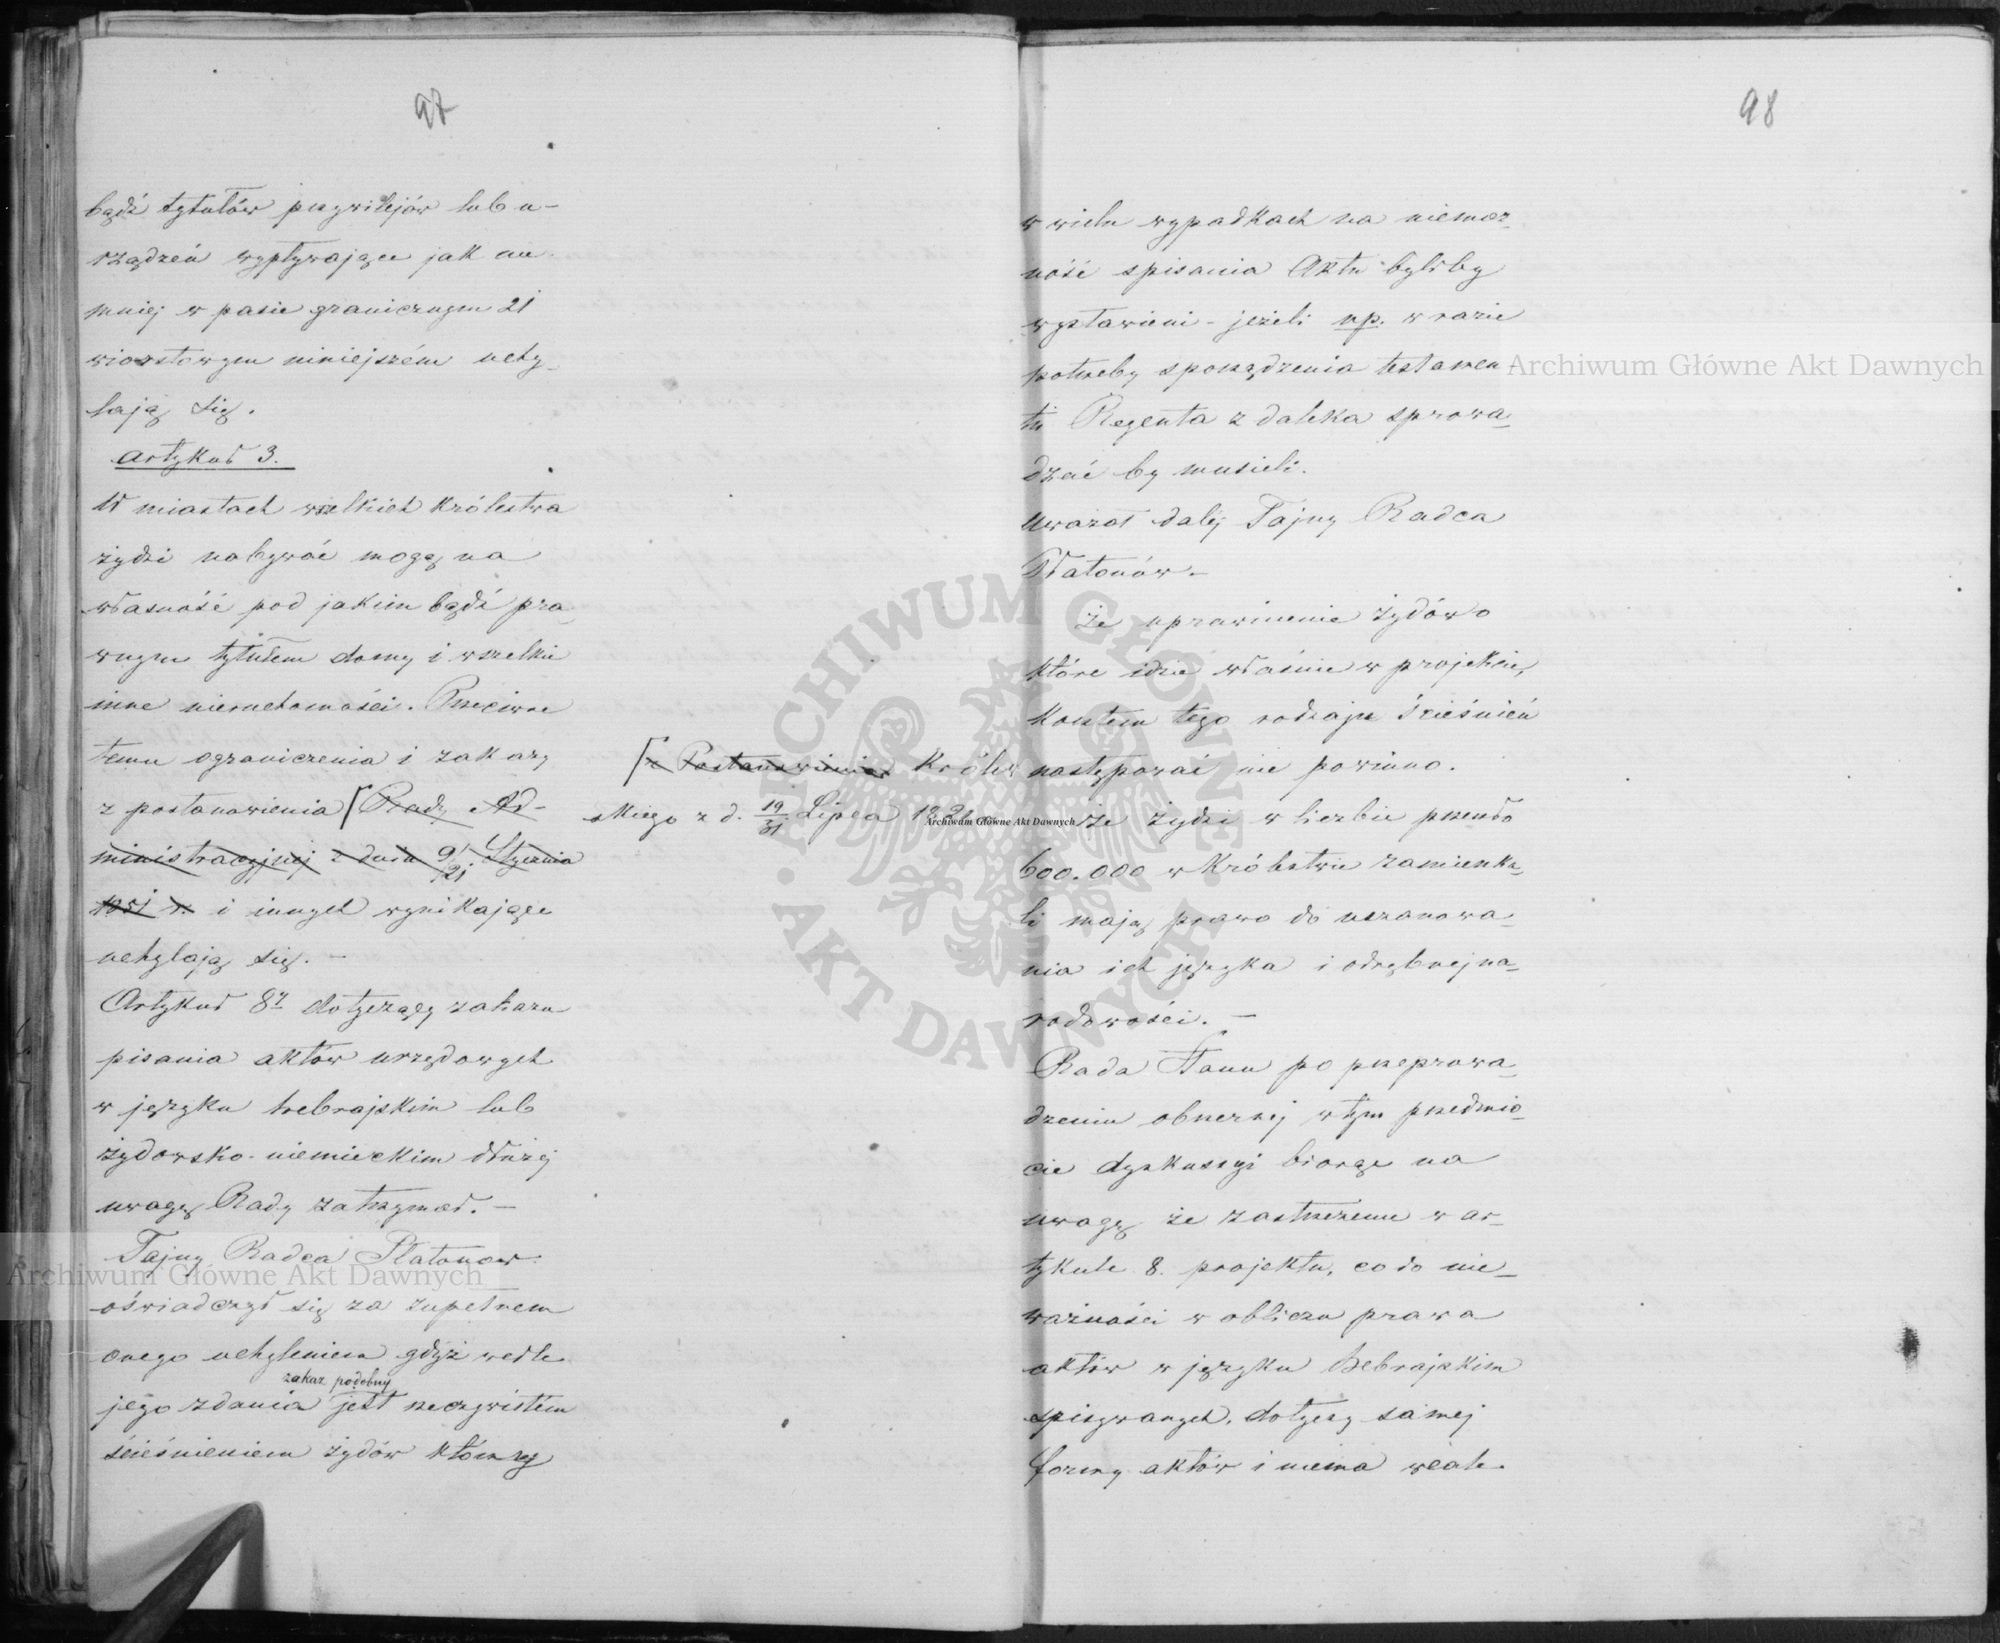 97
bądź tytułów przywilejów lub u-
rządzeń wypływające jak nie
mniej w pasie granicznym 21
wiorstowym niniejszém uchy-
lają się.
Artykuł 3.
W miastach wszelkich Królestwa
żydzi nabywać mogą na
własność pod jakim bądź pra-
wnym tytułem domy i wszelkie
inne nieruchomości. Przeciwne
temu ograniczenia i zakazy
z postanowienia [Rady Ad-
ministracyjnej z dnia 9/21 Stycznia
1851 r. i innych wynikające
uchylają się. –
Artykuł 8y dotyczący zakazu
pisania aktów urzędowych
w języku hebrajskim lub
żydowsko-niemieckim dłużej
uwagę Rady zatrzymał. –
Tajny Radca Platonow
oświadczył się za zupełnem
onego uchyleniem gdyż wedle
zakaz podobny
jego zdania jest rzeczywistém
ścieśnieniem żydów którzy
[z Postanowienia Królew
skiego z d. 19/31 Lipca
98
w wielu wypadkach na niemoż-
ność spisania Aktu byliby
wystawieni - jeżeli np. w razie
potrzeby sporządzenia testamen
tu Regenta z daleka sprowa-
dzać by musieli.
Uważał daléj Tajny Radca
Płatonów. –
że uprawnienie żydów
które idzie właśnie w projekcie,
kosztem tego rodzaju ścieśnień
następować nie powinno.
że żydzi w liczbie przeszło
600.000 w Królestwie zamieszka-
li mają prawo do uszanowa-
nia ich języka i odrębnej na-
rodowości. –
Rada Stanu po przeprowa-
dzeniu obszernej w tym przedmio-
cie dyskussyi biorąc na
uwagę że zastrzeżenie w ar-
tykule 8. projektu, co do nie-
ważności w obliczu prawa
aktów w języku hebrajskim
spisywanych, dotyczy samej
formy aktów i niema wcale
Archiwum Główne Akt Dawnych
Archiwum Główne Akt Dawnych
Archiwum Główne Akt Dawnych
ARCHIWUM GŁÓWNE
AKT DAWNYCH